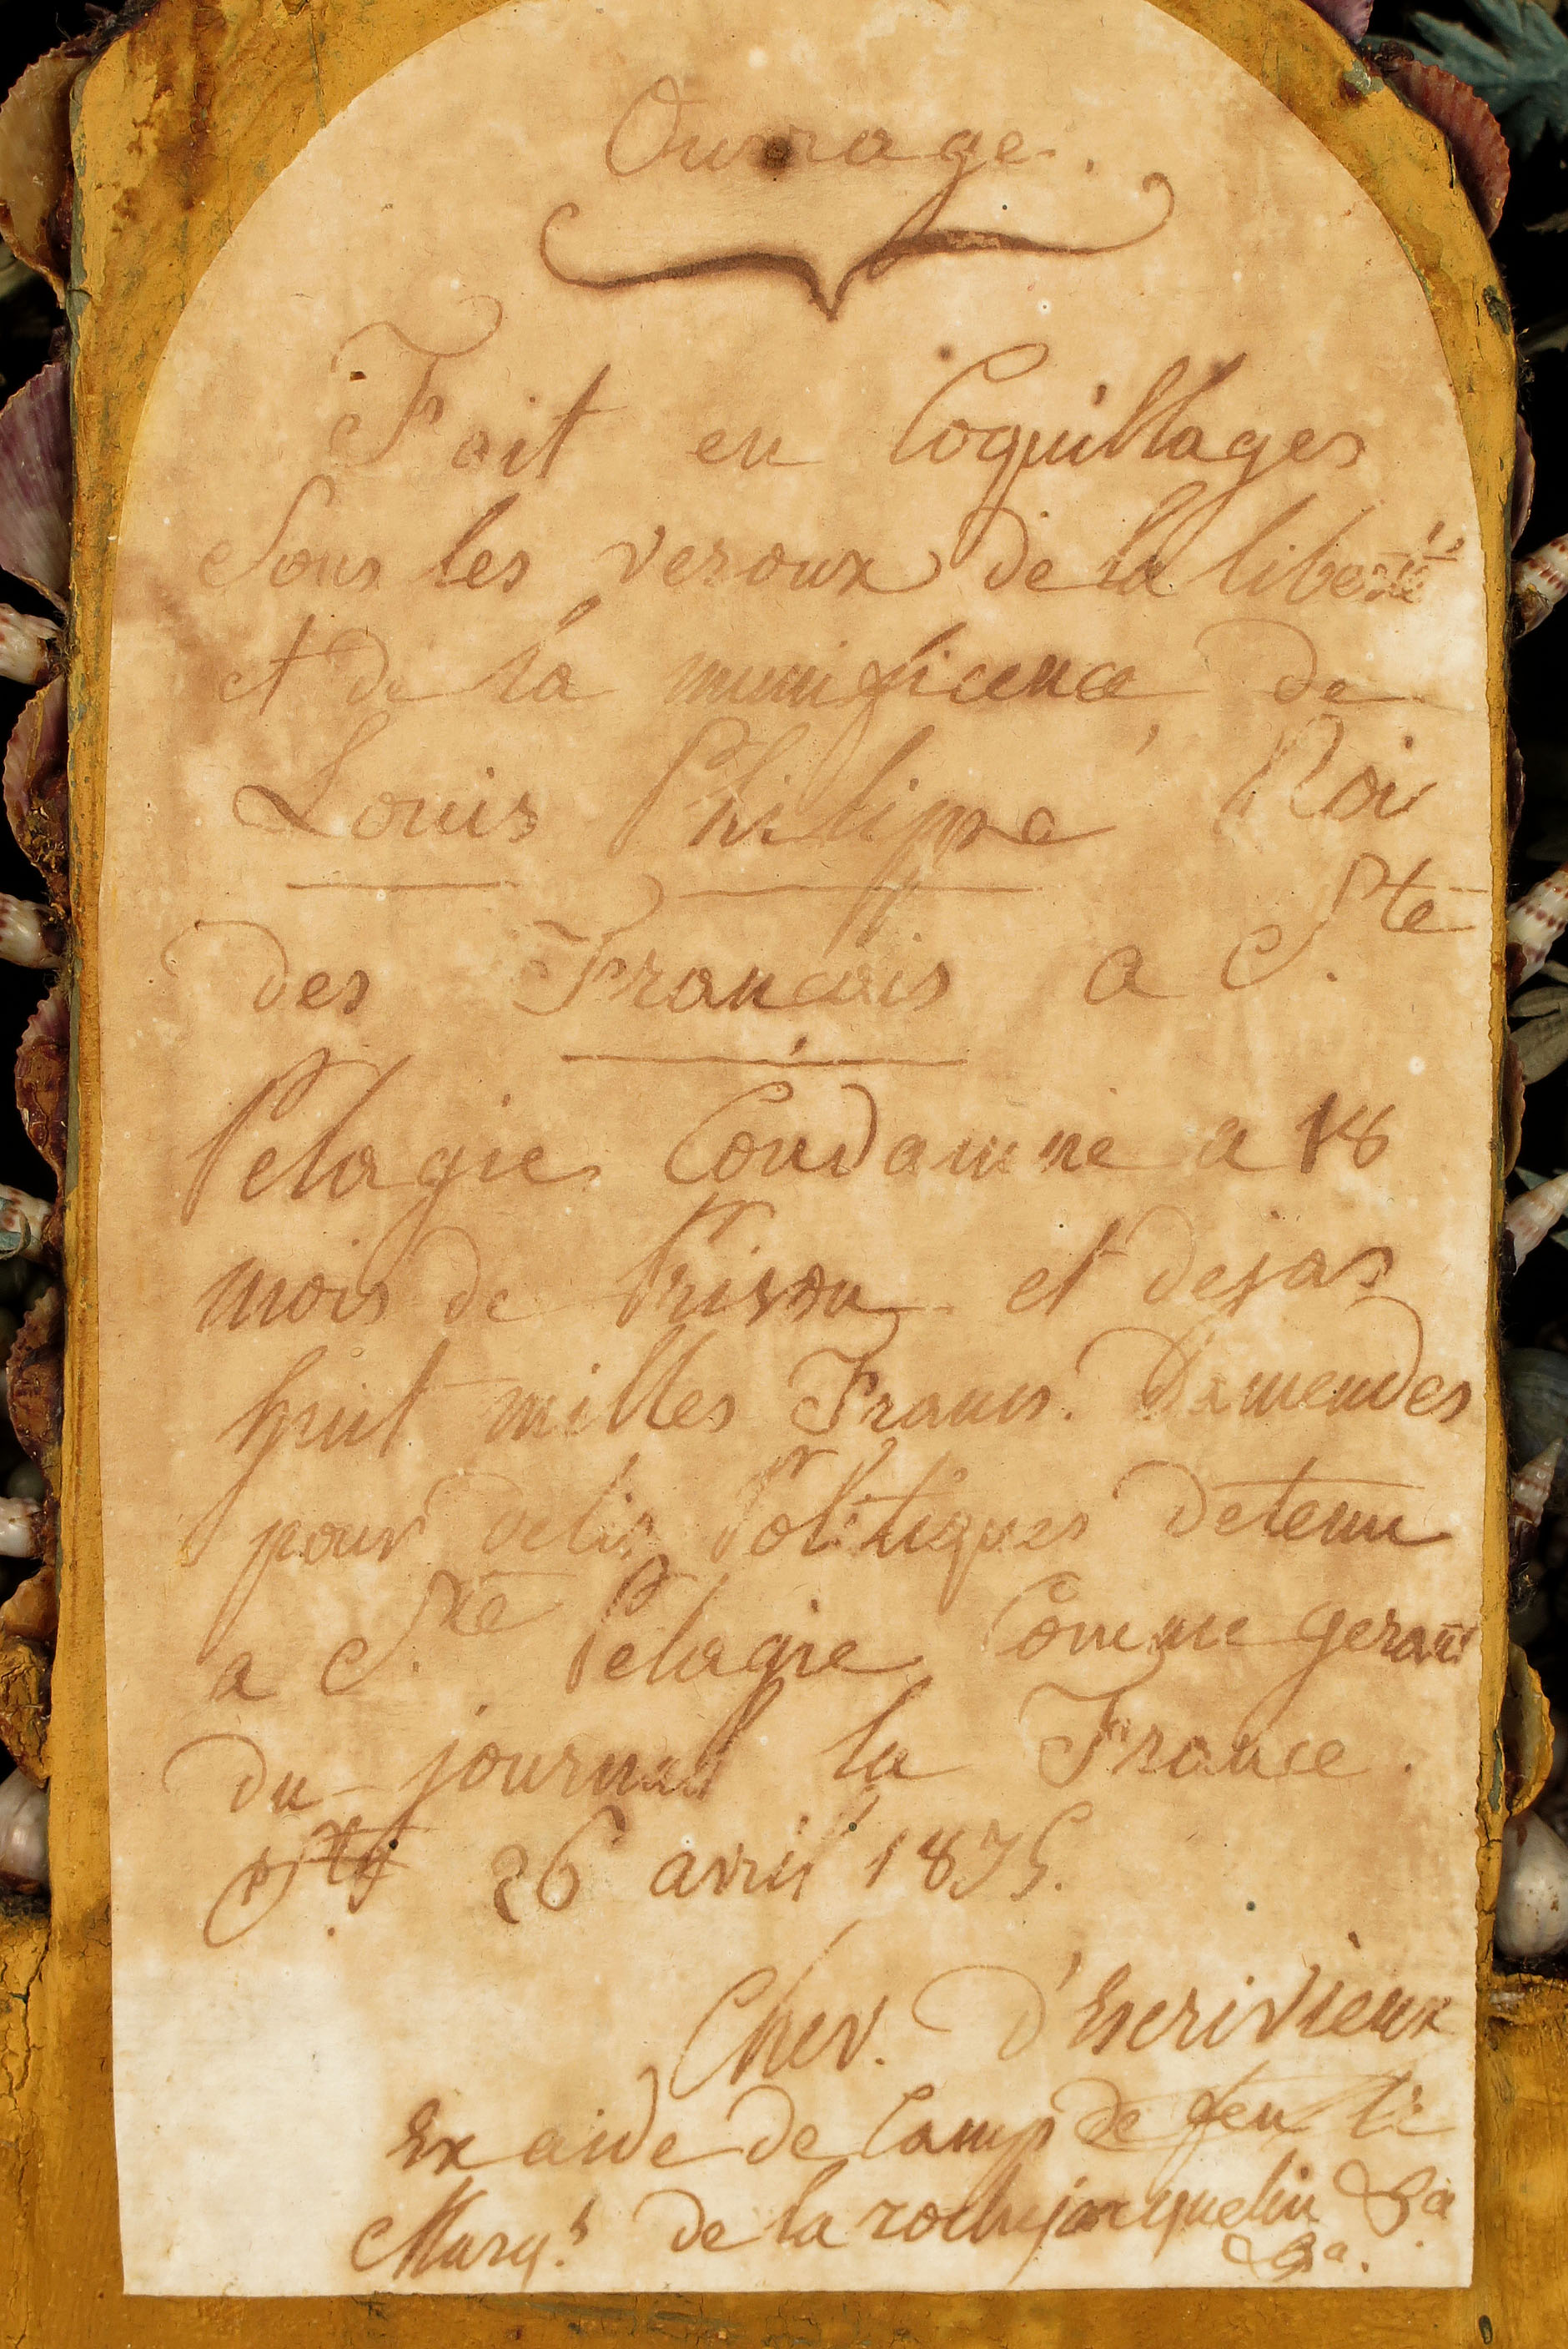 Ouvrage.
Fait en Coquillages
Sous les veroux de la liberté
et de la munificence de
Louis Philippe, Roi
des Francais a Ste
Pelagie Condamné a 18
mois de Prison et dejas
huit milles Francs. Damendes
pour delis Politiques detenu
a Ste Pelagie Comme gerant
du journal la France.
26 avril 1835.
Chev. d'Escrivieux
Ex aide de Camp de feu le
Marq.s de la rochejacquelin &a
&a.